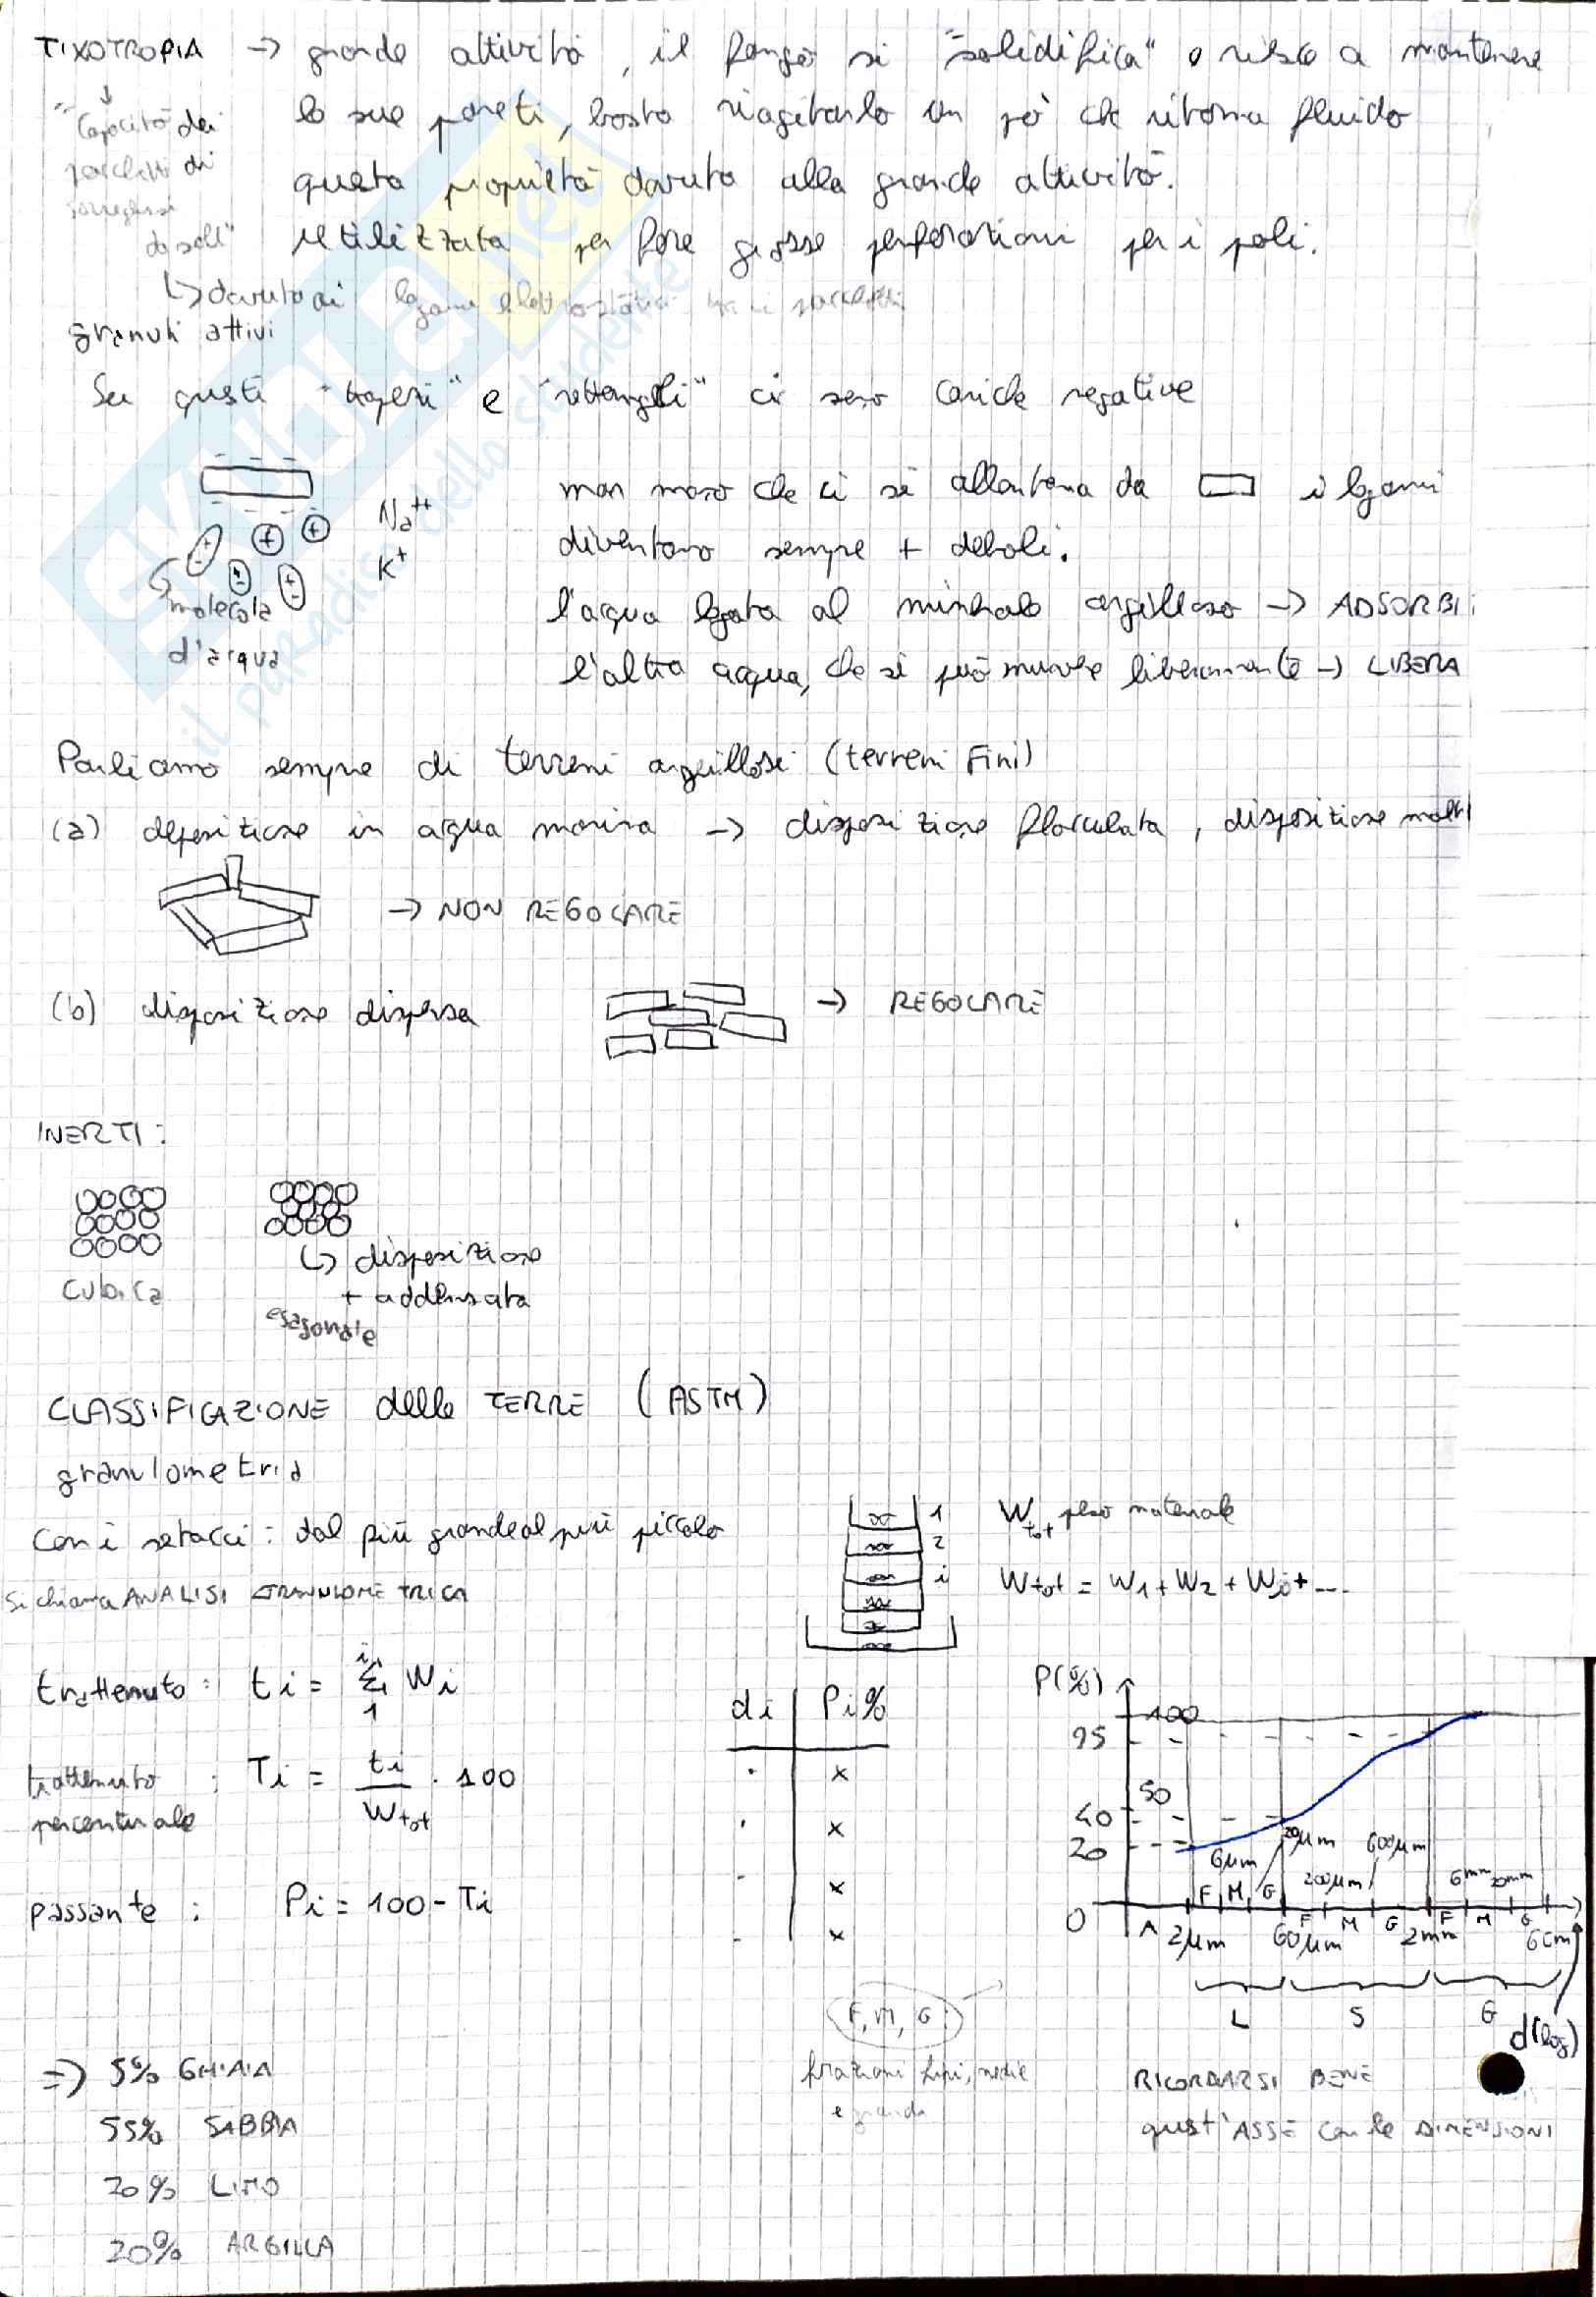 TIXOTROPIA → grande attività, il fango si "solidifica" e riesce a mantenere
le sue pareti, basta riagitarlo un pò che ritorna fluido
questa proprietà dovuta alla grande attività.
utilizzata per fare grosse perforazioni per i pali.
"Capacità dei
pacchetti di
sorreggersi
da soli"
↳ dovuta ai legami elettrostatici tra i pacchetti
granuli attivi
Su questi "trapezi" e "rettangoli" ci sono cariche negative
Na++
K+
molecola
d'acqua
man mano che ci si allontana da i legami
diventano sempre + deboli.
l'acqua legata al minerale argilloso → ADSORBI
l'altra acqua, che si può muovere liberamente → LIBERA
Parliamo sempre di terreni argillosi (terreni Fini)
(a) deposizione in acqua marina → disposizione flocculata, disposizione molt
→ NON REGOLARE
(b) disposizione dispersa → REGOLARE
INERTI:
cubica
↳ disposizione
+ addensata
esagonale
CLASSIFICAZIONE delle TERRE (ASTM)
granulometria
con i setacci: dal più grande al più piccolo
Si chiama ANALISI GRANULOMETRICA
1
2
i
Wtot peso materiale
Wtot = W1 + W2 + Wi + ...
trattenuto: ti = i Σ 1 Wi
trattenuto
percentuale : Ti = ti / Wtot · 100
passante: Pi = 100 - Ti
di Pi%
· x
· x
- x
- x
P(%)
100
95
50
40
20
0
6μm 20μm 200μm 600μm 6mm 20mm
F M G F M G F M G
A 2μm 60μm 2mm 6cm
L S G
d(log)
F, M, G:
frazioni fini, medie
e grandi
RICORDARSI BENE
quest'ASSE con le DIMENSIONI
⇒ 5% GHIAIA
55% SABBIA
20% LIMO
20% ARGILLA
SKUOLA.net
il paradiso dello studente